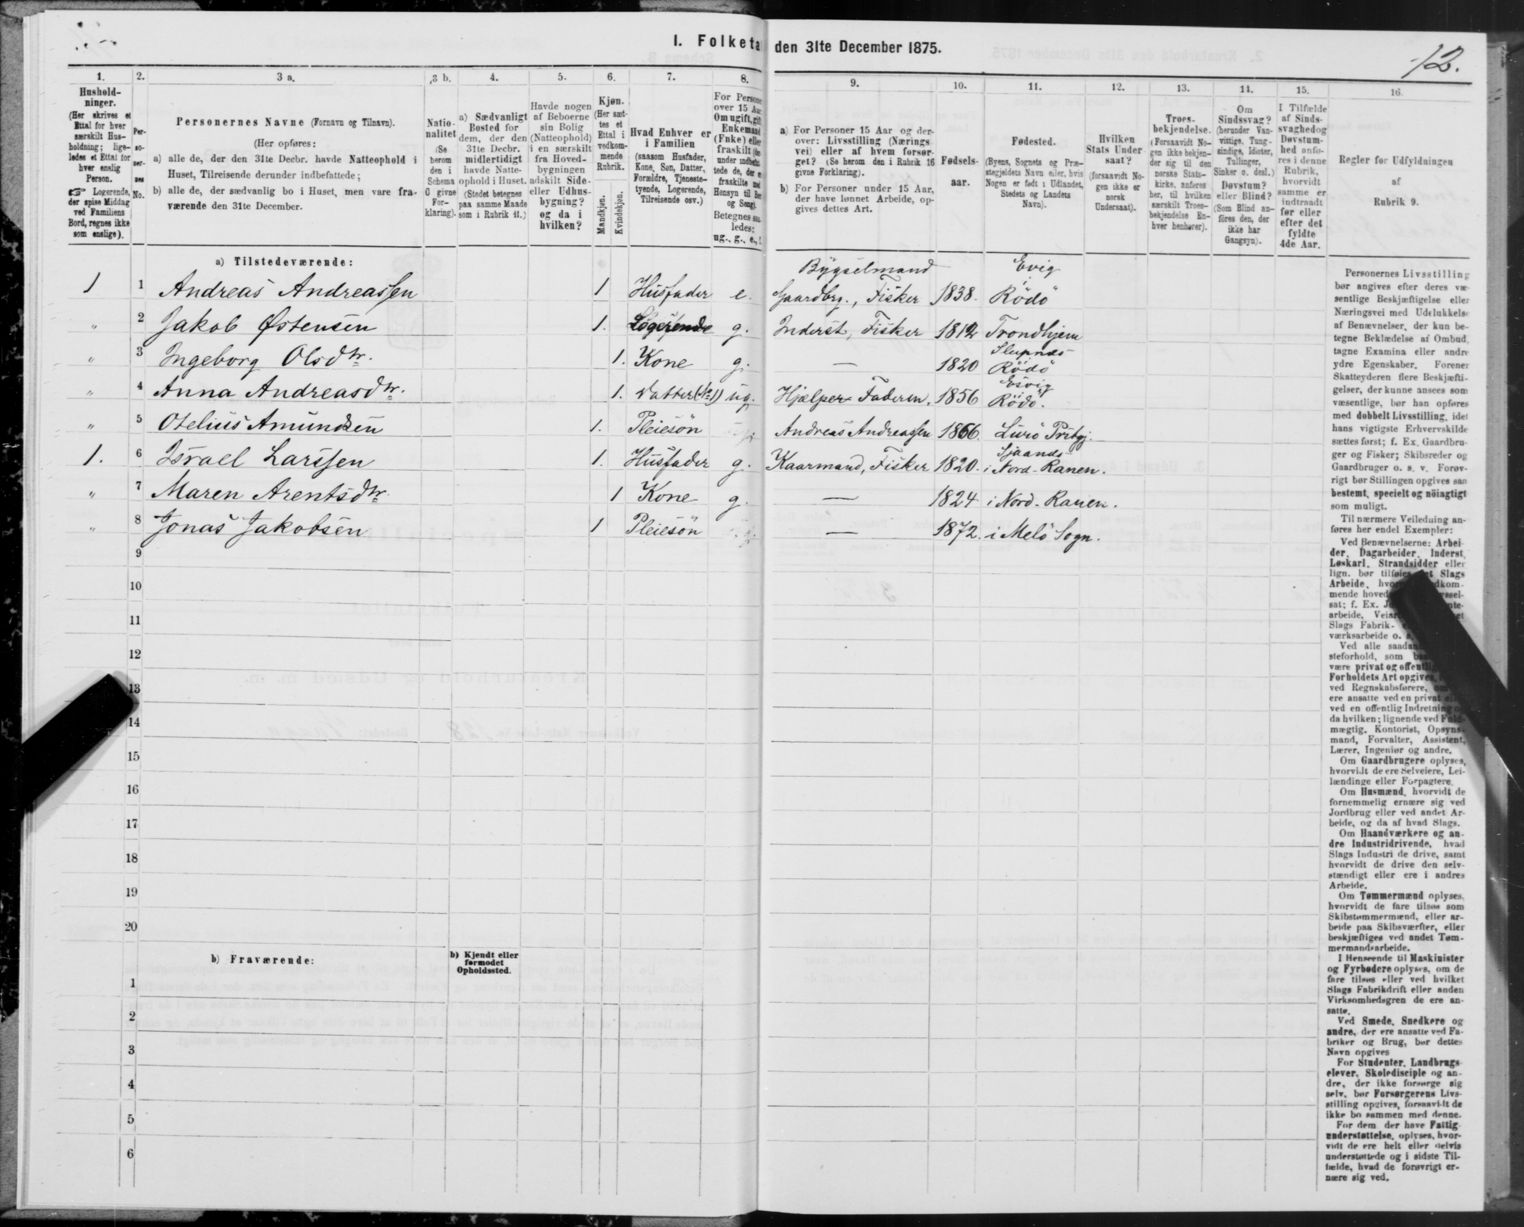 I. Folketa den 31te December 1875.
12.
1.
Hushold-
ninger.
(Her skrives et
Ettal for hver
særskilt Hus-
holdning; lige-
ledes et Ettal for
hver enslig
Person.
☞ Logerende,
der spise Middag
ved Familiens
Bord, regnes ikke
som enslige).
2.
Per-
so-
ner-
nes
No.
3 a.
Personernes Navne (Fornavn og Tilnavn).
(Her opføres:
a) alle de, der den 31te Decbr. havde Natteophold i
Huset, Tilreisende derunder indbefattede;
b) alle de, der sædvanlig bo i Huset, men vare fra-
værende den 31te December.
3 b.
Natio-
nalitet
(Se
herom
den i
Schema
C givne
For-
klaring).
4.
a) Sædvanligt
Bosted for
dem, der den
31te Decbr.
midlertidigt
havde Natte-
ophold i Huset.
(Stedet betegnes
paa samme Maade
som i Rubrik 11.)
5.
Havde nogen
af Beboerne
sin Bolig
(Natteophold)
i en særskilt
fra Hoved-
bygningen
adskilt Side-
eller Udhus-
bygning?
og da i
hvilken?
6.
Kjøn.
(Her sæt-
tes et
Ettal i
vedkom-
mende
Rubrik.
Mandkjøn.
Kvindekjøn.
7.
Hvad Enhver er
i Familien
(saasom Husfader,
Kone, Søn, Datter,
Forældre, Tjeneste-
tyende, Logerende,
Tilreisende osv.)
8.
For Persone
over 15 Aar
Om ugift, gift
Enkemand
(Enke) eller
fraskilt
under indbefa
tede de, der e
fraskilte
Hensyn til
og Seng).
Betegnes
ledes:
ug., g., e., f.
9.
a) For Personer 15 Aar og der-
over: Livsstilling (Nærings-
vei) eller af hvem forsør-
get? (Se herom den i Rubrik 16
givne Forklaring).
b) For Personer under 15 Aar,
der have lønnet Arbeide, op-
gives dettes Art.
10.
Fødsels-
aar.
11.
Fødested.
(Byens, Sognets og Præ-
stegjeldets Navn eller, hvis
Nogen er født i Udlandet,
Stedets og Landets
Navn).
12.
Hvilken
Stats Under-
saat?
(forsaavidt No-
gen ikke er
norsk
Undersaat).
13.
Troes-
bekjendelse.
(Forsaavidt No-
gen ikke bekjen-
der sig til den
norske Stats-
kirke, anføres
her, til hvilken
særskilt Troes-
bekjendelse En-
hver henhører).
14.
Om
Sindssvag?
(herunder Van-
vittige, Tung-
sindige, Idioter,
Tullinger,
Sinker o. desl.)
Døvstum?
eller Blind?
(Som Blind an-
føres den, der
ikke har
Gangsyn).
15.
I Tilfælde
af Sinds-
svaghed og
Døvstum-
hed anfø-
res i denne
Rubrik,
hvorvidt
samme er
indtraadt
før eller
efter det
fyldte
4de Aar.
16.
Regler for Udfyldningen
af
Rubrik 9.
a) Tilstedeværende:
Bygselmand
1 1 Andreas Andreassen 1 Husfader e. Gaardbrg., Fisker 1838. Rödö
" 2 Jakob Østensen 1. Logerende g. Inderst, Fisker 1812 Trondhjem
" 3 Ingeborg Olsdtr. 1. Kone g. — 1820 Rödö
" 4 Anna Andreasdtr. 1. Datter (No 1) ug. Hjælper Faderen. 1856 Rödö.
" 5 Otelius Amundsen 1. Pleiesön Andreas Andreassen 1866. Lurö
1. 6 Israel Larssen 1. Husfader g. Kaarmand, Fisker 1820. i Nord-Ranen.
" 7 Maren Arentsdtr. 1 Kone g. — 1824. i Nord-Ranen.
" 8 Jonas Jakobsen 1 Pleiesön — 1872. i Melö Sogn.
9
10
11
12
13
14
15
16
17
18
19
20
b) Fraværende:
b) Kjendt eller
formodet
Opholdssted.
1
2
3
4
5
6
Personernes Livsstilling
bør angives efter deres væ-
sentlige Beskjæftigelse eller
Næringsvei med Udelukkelse
af Benævnelser, der kun be-
tegne Beklædelse af Ombud,
tagne Examina eller andre
ydre Egenskaber. Forener
Skatteyderen flere Beskjæfti-
gelser, der kunne ansees som
væsentlige, bør han opføres
med dobbelt Livsstilling, idet
hans vigtigste Erhvervskilde
sættes først; f. Ex. Gaardbru-
ger og Fisker; Skibsreder og
Gaardbruger o. s. v. Forøv-
rigt bør Stillingen opgives saa
bestemt, specielt og nøiagtigt
som muligt.
Til nærmere Veiledning an-
føres her endel Exempler:
Ved Benævnelserne: Arbei-
der, Dagarbeider, Inderst,
Løskarl, Strandsidder eller
lign. bør tilføies Slags
Arbeide,
mende hoved
sat; f. Ex.
arbeide,
Slags Fabrik-
værksarbeide o.
Ved alle saada
steforhold, som
være privat og offentlig
Forholdets Art opgives,
ved Regnskabsførere,
ere ansatte ved en privat
ved en offentlig Indretning
da hvilken; lignende ved Fuld-
mægtig, Kontorist, Opsyns-
mand, Forvalter, Assistent,
Lærer, Ingeniør og andre.
Om Gaardbrugere oplyses,
hvorvidt de ere Selveiere, Lei-
lændinge eller Forpagtere.
Om Husmænd, hvorvidt de
fornemmelig ernære sig ved
Jordbrug eller ved andet Ar-
beide, og da af hvad Slags.
Om Haandværkere og an-
dre Industridrivende, hvad
Slags Industri de drive, samt
hvorvidt de drive den selv-
stændigt eller ere i andres
Arbeide.
Om Tømmermænd oplyses,
hvorvidt de fare tilsøs som
Skibstømmermænd, eller ar-
beide paa Skibsværfter, eller
beskjæftiges ved andet Tøm-
mermandsarbeide.
I Henseende til Maskinister
og Fyrbødere oplyses, om de
fare tilsøs eller ved hvilket
Slags Fabrikdrift eller anden
Virksomhedsgren de ere an-
satte.
Ved Smede, Snedkere og
andre, der ere ansatte ved Fa-
briker og Brug, bør dettes
Navn opgives
For Studenter, Landbrugs-
elever, Skoledisciple og an-
dre, der ikke forsørge sig
selv, bør Forsørgerens Livs-
stilling opgives, forsaavidt de
ikke bo sammen med denne.
For dem der have Fattig-
understøttelse, oplyses, hvor-
vidt de ere helt eller delvis
understøttede og i sidste Til-
fælde, hvad de forøvrigt er-
nære sig ved.